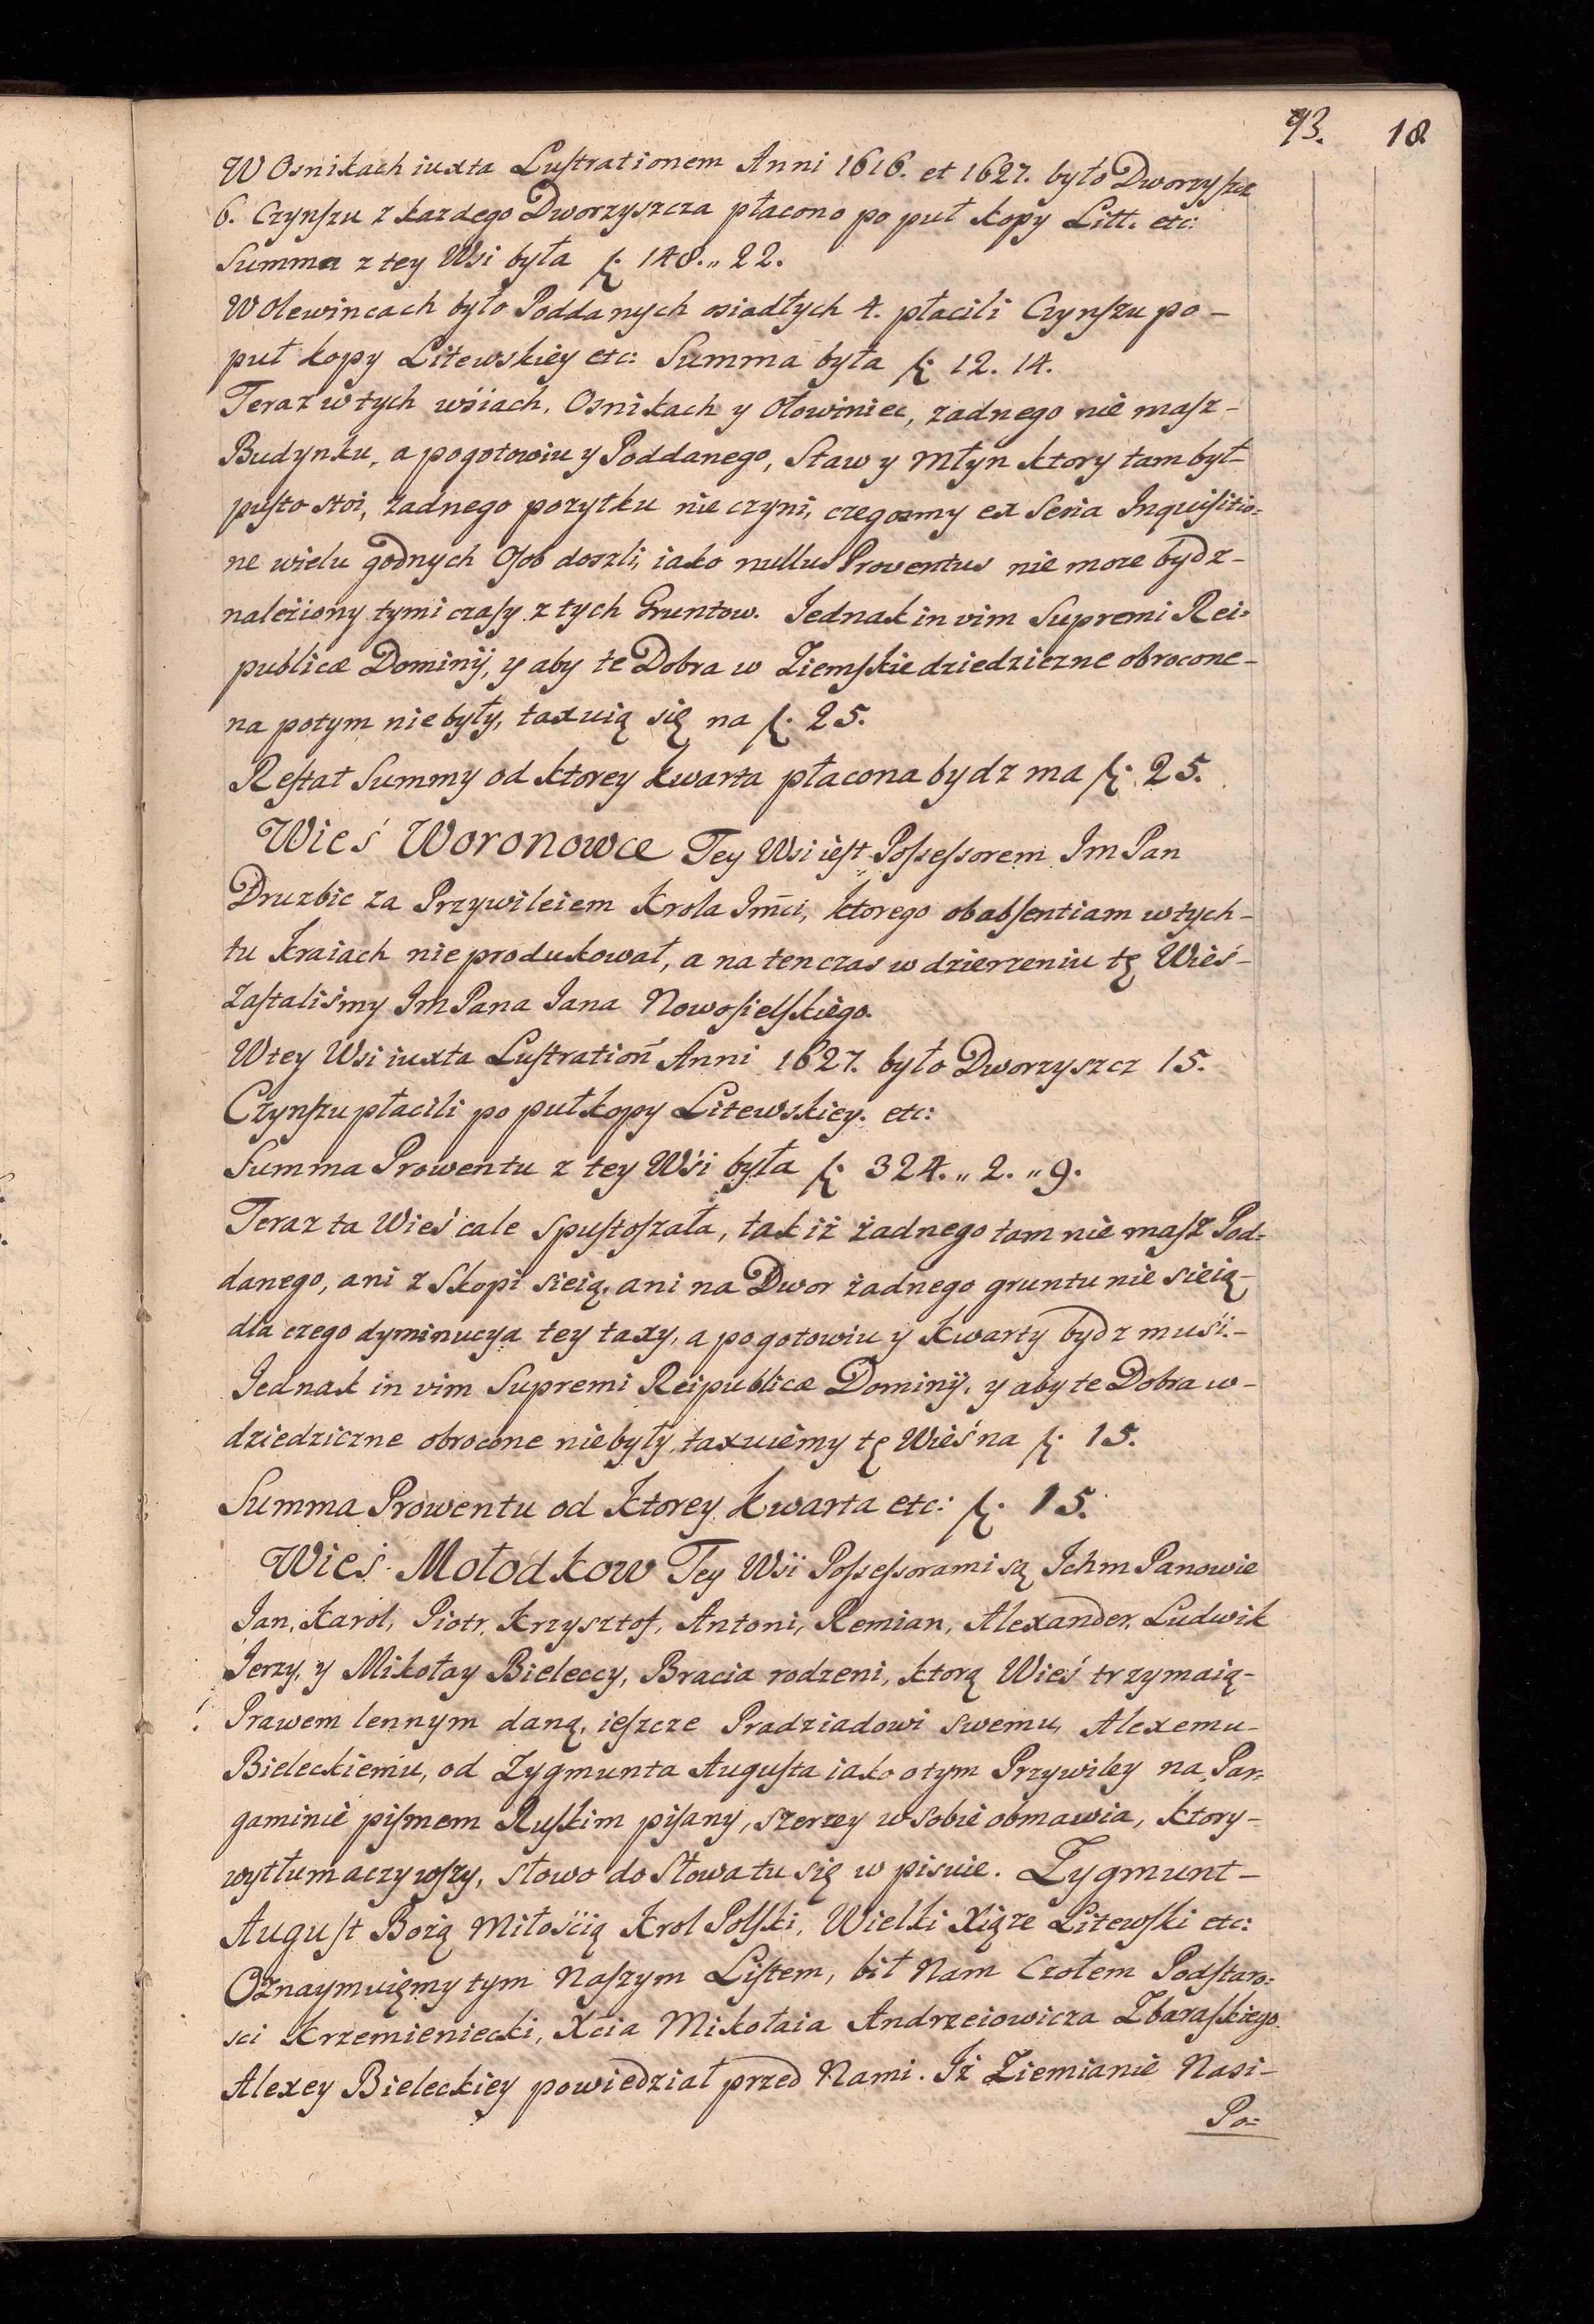 93. 18
W Osnikach iuxta Lustrationem Anni 1616. et 1627. było Dworzyszcz
6. Czynszu z kazdego Dworzyszcza płacono po puł kopy Litt. etc:
Summa z tey Wsi była f. 148. „ 22.
W Olewincach było Poddanych osiadłych 4. płacili Czynszu po –
puł kopy Litewskiey etc: Summa była f. 12. 14.
Teraz w tych wsiach, Osnikach y Ołowiniec, zadnego nie masz –
Budynku, a pogotowiu y Poddanego, Staw y Młyn ktory tam był –
pusto stoi, zadnego pozytku nie czyni, czegosmy ex Seria Inquisitio=
ne wielu godnych Osob doszli, iako nullus Proventus nie moze bydz –
naleziony tymi czasy z tych Gruntow. Jednak in vim Supremi Rei=
publicæ Dominÿ, y aby te Dobra w Ziemskie dziedziczne obrocone –
na potym nie były, taxuią się na f. 25.
Restat Summy od ktorey kwarta płacona bydz ma f. 25.
Wieś Woronowce Tey Wsi iest Possessorem Im Pan
Druzbic za Przywileiem Krola Jm̃ci, ktorego ob absentiam w tych –
tu kraiach nie produkował, a na ten czas w dzierzeniu tę Wieś –
zastaliśmy Im Pana Jana Nowosielskiego.
W tey Wsi iuxta Lustration̄ Anni 1627. było Dworzyszcz 15.
Czynszu płacili po puł kopy Litewskiey. etc:
Summa Prowentu z tey Wśi była f. 324. „ 2. „ 9.
Teraz ta Wieś cale spustoszała, tak iż żadnego tam nie masz Pod=
danego, ani z Skopi sieią, ani na Dwor żadnego gruntu nie sieią –
dla czego dyminucya tey taxy, a pogotowiu y kwarty bydz muśi. –
Jednak in vim Supremi Reipublicæ Dominÿ, y aby te Dobra w –
dziedziczne obrocone nie były, taxuiemy tę Wieś na f. 15.
Summa Prowentu od ktorey kwarta etc: f. 15.
Wieś Mołodkow Tey Wśi Possessorami są Ichm Panowie
Jan, Karol, Piotr, Krzysztof, Antoni, Remian, Alexander, Ludwik
Jerzy, y Mikołay Bieleccy, Bracia rodzeni, ktorą Wieś trzymaią –
Prawem lennym daną, ieszcze Pradziadowi swemu, Alexemu –
Bieleckiemu, od Zygmunta Augusta iako o tym Przywiley na Par=
gaminie pismem Ruskim pisany, szerzey w sobie obmawia, ktory –
wytłumaczywszy, słowo do słowa tu się wpisuie. Zygmunt –
August Bożą Miłością Krol Polski, Wielki Xiąze Litewski etc:
Oznaymuięmy tym Naszym Listem, bił Nam Czołem Podstaro=
sci Krzemieniecki, Xcia Mikołaia Andrzeiowicza Zbaraskiego.
Alexey Bieleckiey powiedział przed Nami. Iż Ziemianie Nasi –
Po=